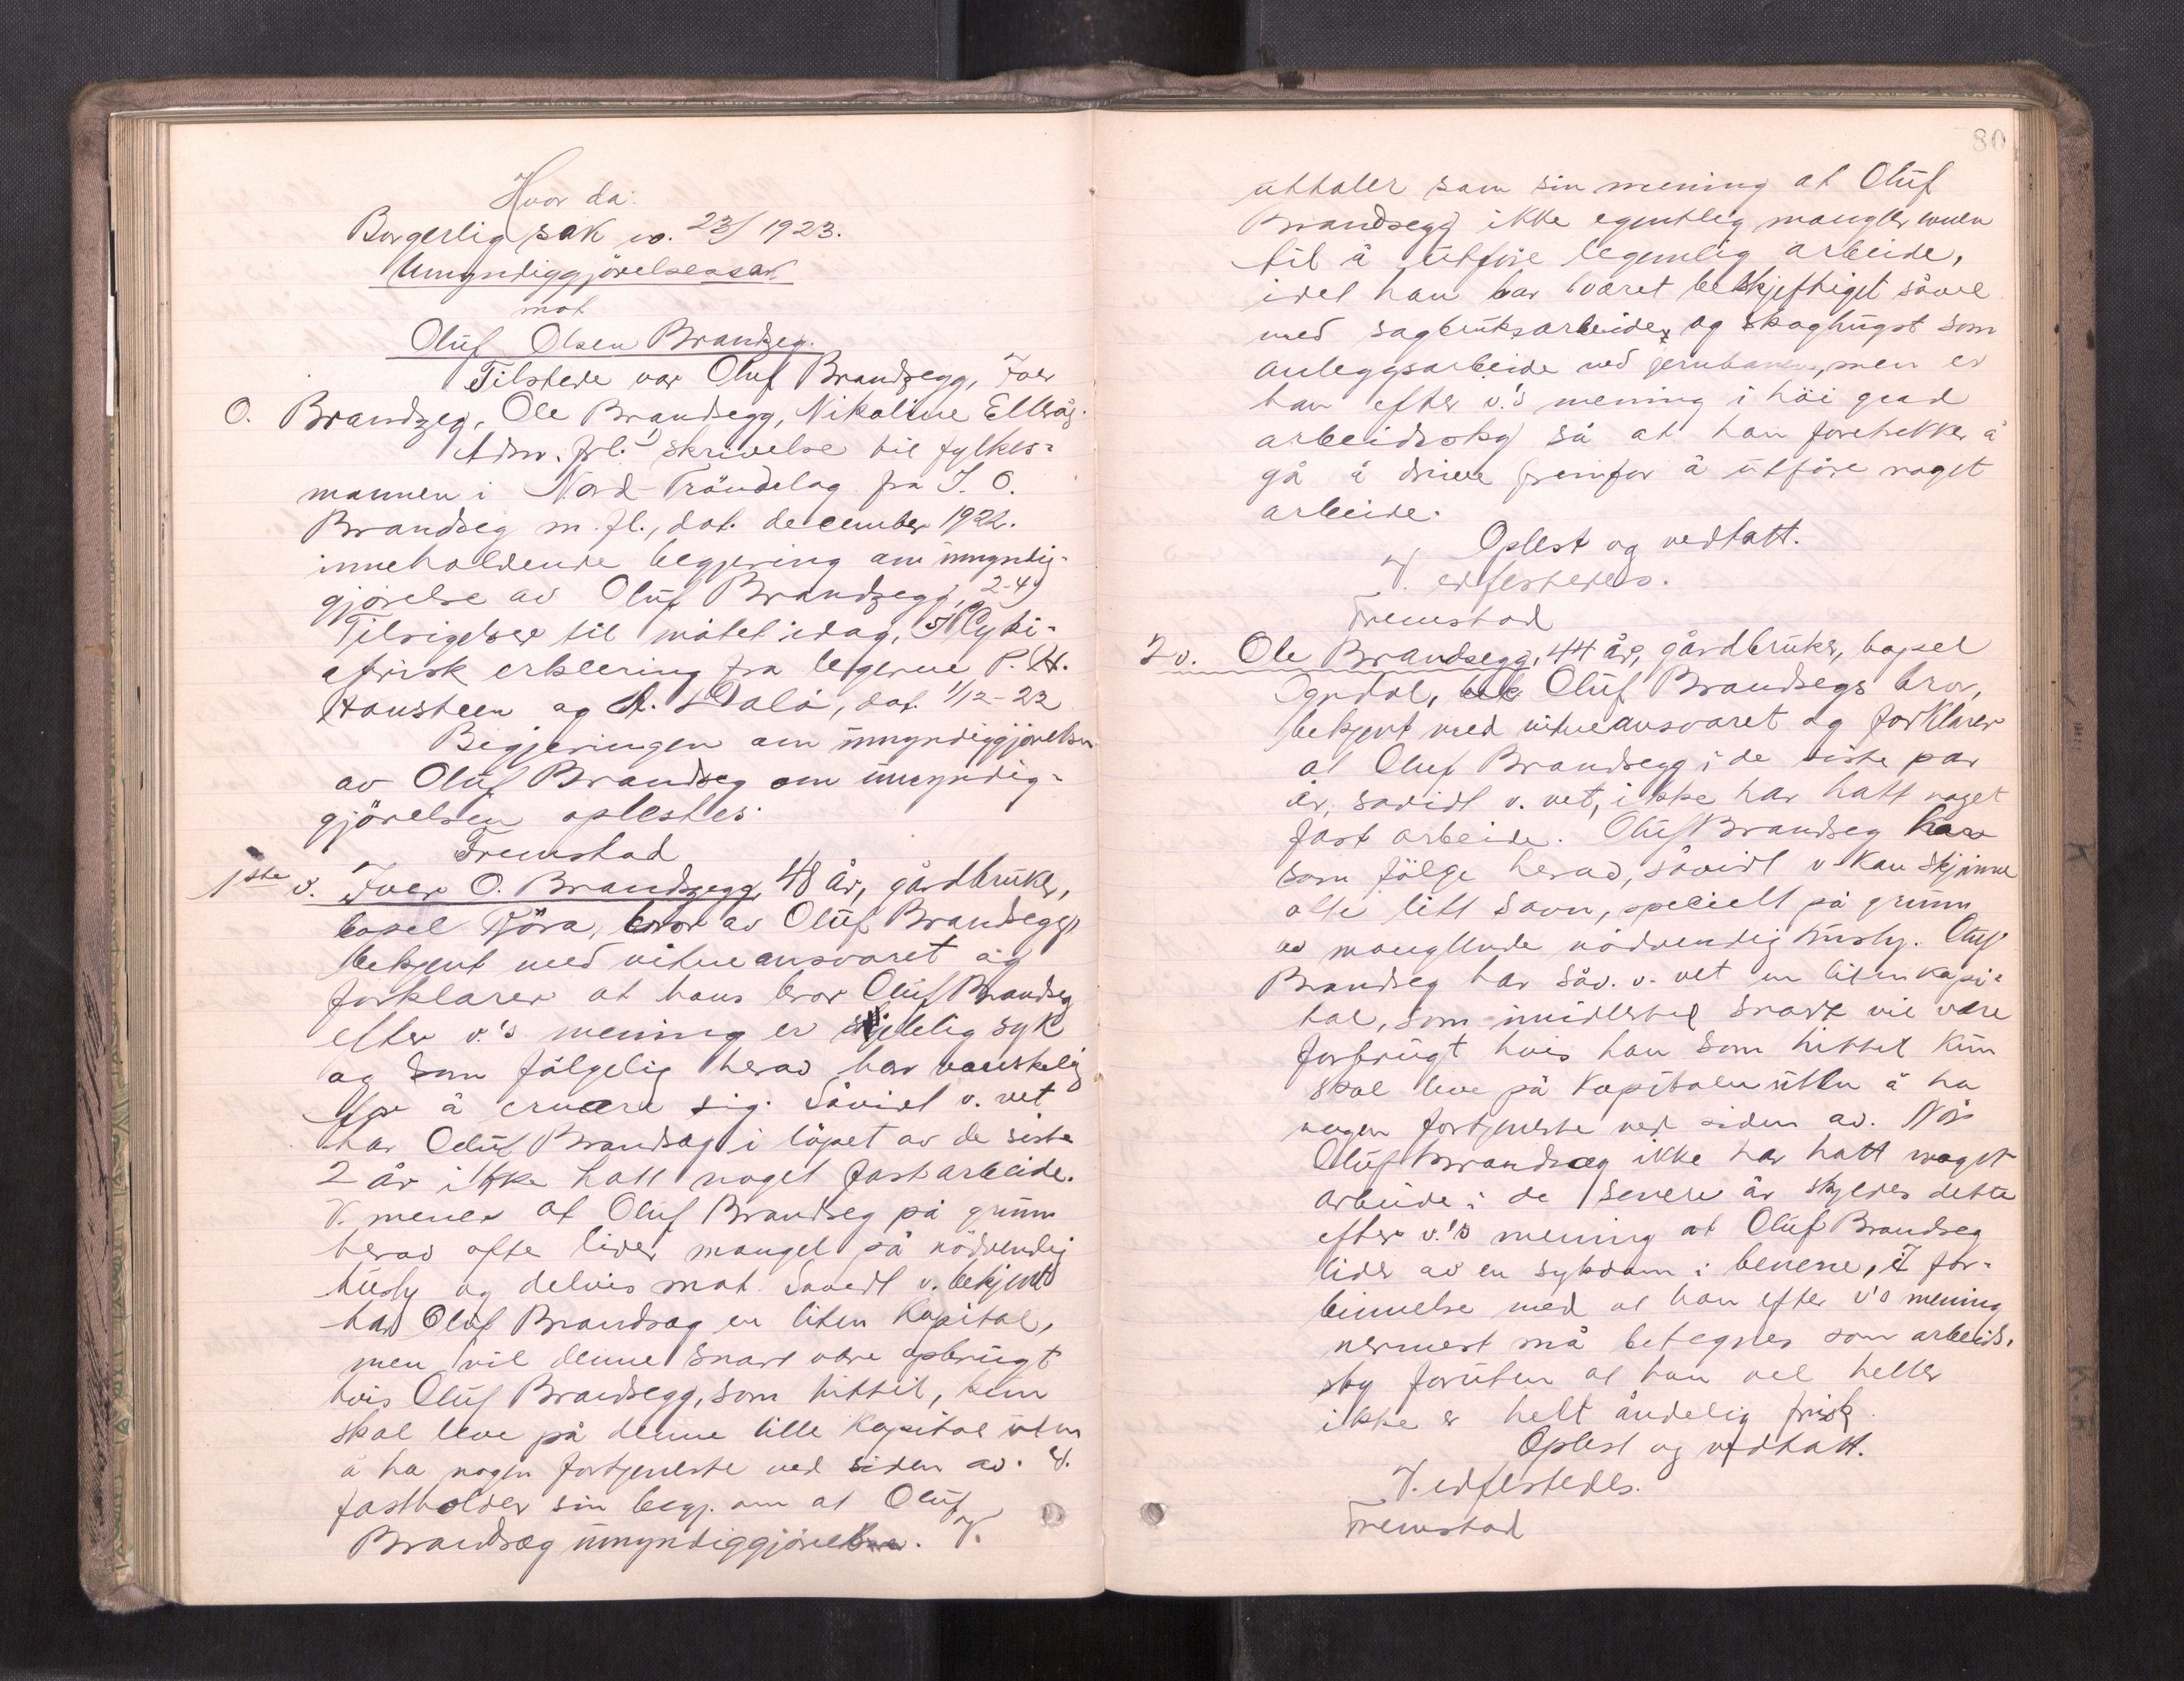 Hvor da:
Borgerlig sak no. 23/1923.
Umyndiggjörelsessak
mot
Oluf Olsen Brandseg.
Tilstede var Oluf Brandsegg, Iver
O. Brandzeg, Ole Brandsegg, Nikoline
Adm. frl. 1) skrivelse til fylkes-
mannen i Nord-Tröndelag fra I. O.
Brandseg m. fl., dat. december 1922.
inneholdende begjæring om umyndig-
gjörelse av Oluf Brandsegg, 2-4)
Tilsigelser til mötet idag, 5)
erklæring fra legerne P. H.
Hansteen og Dalö, dat. 1/12-22
Begjæringen om umyndiggjörelsen
av Oluf Brandseg om umyndig-
gjörelsen oplestes.
Fremstod
1ste v. Iver O. Brandsegg, 48 år, gårdbruker,
bopel Kjöra, bror av Oluf Brandsegg,
bekjent med vitneansvaret og
forklarer at hans bror Oluf Brandseg
efter v.'s mening er sjelelig syk
og som fölgelig herav har vanskelig
for å ernære sig. Såvidt v. vet
har Oluf Brandsæg i löpet av de siste
2 år ikke hatt noget fast arbeide.
V. mener at Oluf Brandseg på grunn
herav ofte lider mangel på nödvendig
husly og delvis mat. Såvidt v. bekjent
har Oluf Brandsæg en liten kapital,
men vil denne snart være opbrugt
hvis Oluf Brandsegg, som hittil, kun
skal leve på denne lille kapital uten
å ha nogen fortjeneste ved siden av. V.
fastholder sin begj. om at Oluf
Brandsæg umyndiggjöres. V.
80
uttaler som sin mening at Oluf
Brandsegg ikke egentlig mangler evnen
til å utföre legemlig arbeide,
idet han har været beskjeftiget såvel
med sagbruksarbeide og skoghugst som
anleggsarbeide ved jernbanen, men er
han efter v.'s mening i höi grad
arbeidssky så at han foretrekker å
gå å drive fremfor å utföre noget
arbeide.
Oplest og vedtatt.
V. edfestedes.
Fremstod
2 v. Ole Brandsegg, 44 år, gårdbruker, bopel
Ogndal, Oluf Brandsegs bror,
bekjent med vitneansvaret og forklarer
at Oluf Brandsegg i de siste par
år, såvidt v. vet, ikke har hatt noget
fast arbeide. Oluf Brandseg har
som fölge herav, såvidt v. kan skjönne
ofte litt savn, specielt på grunn
av manglende nödvendig husly. Oluf
Brandseg har såv. v. vet en liten kapi-
tal, som imidlertid snart vil være
forbrugt hvis han som hittil kun
skal leve på kapitalen uten å ha
nogen fortjeneste ved siden av. Når
Oluf Brandsæg ikke har hatt noget
arbeide i de senere år skyldes dette
efter v.'s mening at Oluf Brandseg
lider av en sykdom i benene, i for-
binnelse med at han efter v's mening
nermest må betegnes som arbeids-
sky foruten at han vel heller
ikke er helt åndelig frisk.
Oplest og vedtatt.
V. edfestedes.
Fremstod